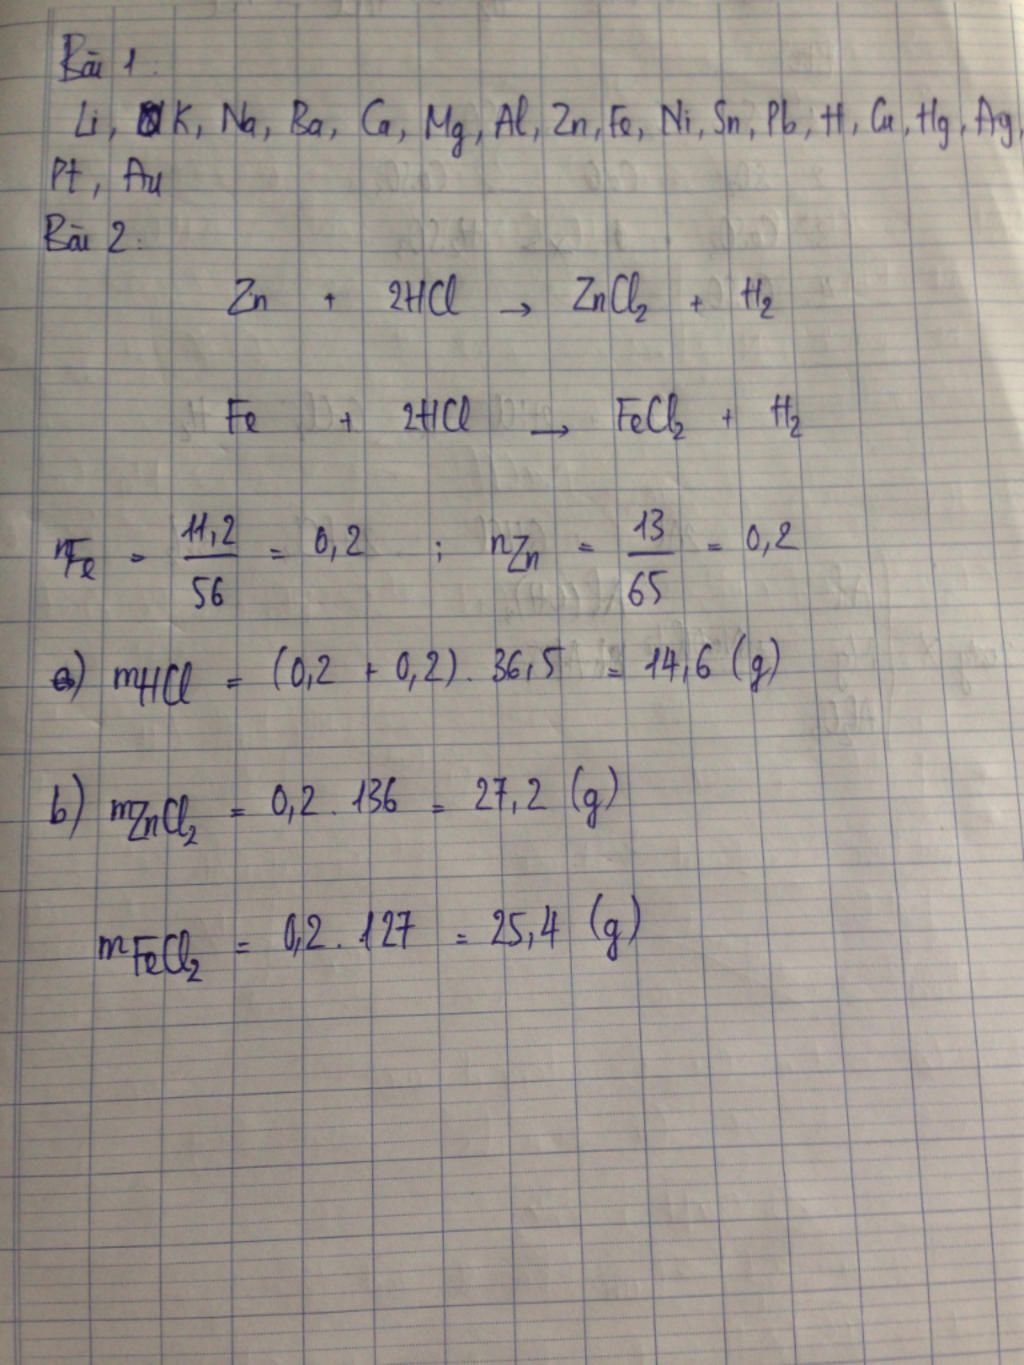 Bài 1:
Li, K, Na, Ba, Ca, Mg, Al, Zn, Fe, Ni, Sn, Pb, H, Cu, Hg, Ag,
Pt, Au
Bài 2:
Zn + 2HCl → ZnCl₂ + H₂
Fe + 2HCl → FeCl₂ + H₂
nFe = 11,2/56 = 0,2 ; nZn = 13/65 = 0,2
a) mHCl = (0,2 + 0,2). 36,5 = 14,6 (g)
b) mZnCl₂ = 0,2 . 136 = 27,2 (g)
mFeCl₂ = 0,2 . 127 = 25,4 (g)